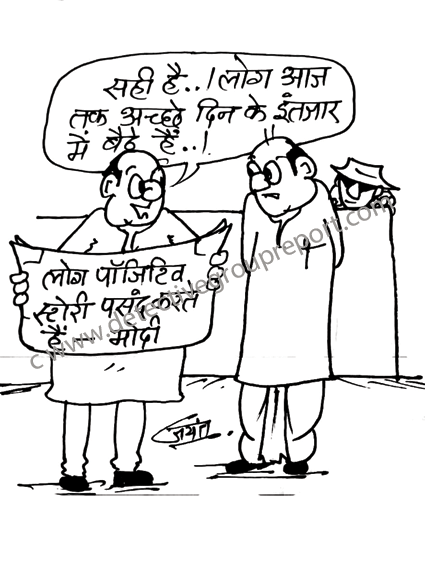 सही है..! लोग आज
तक अच्छे दिन के इंतजार
में बैठे हैं..!
लोग पॉजिटिव
स्टोरी पसंद करते
हैं - मोदी
www.detectivegroupreport.com
जयंत